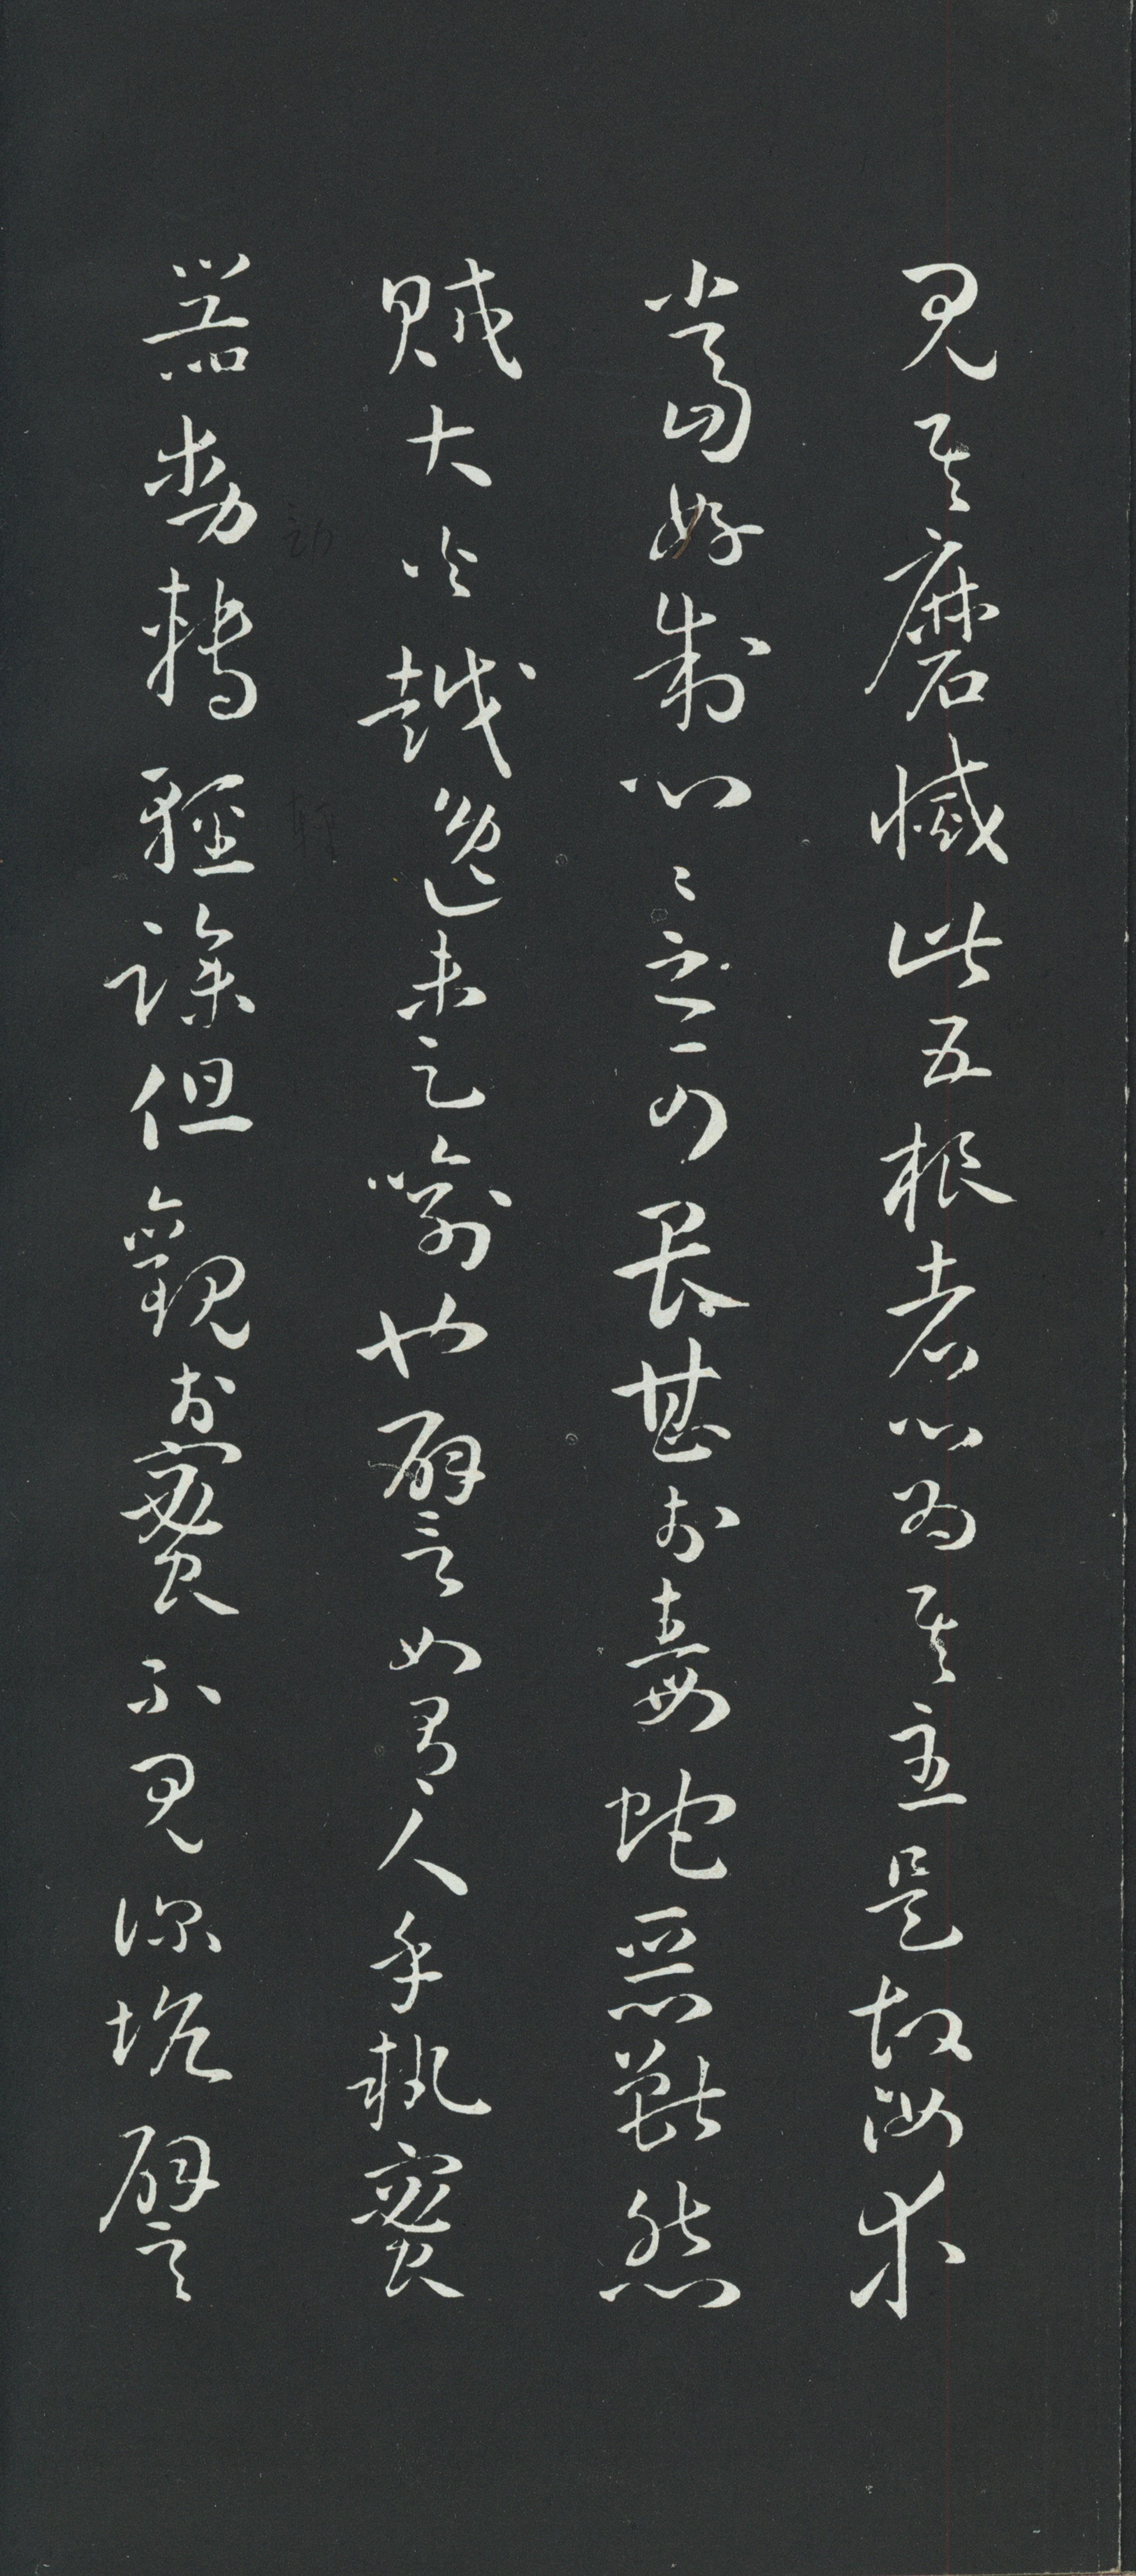 見其磨滅此五根者心為其主是故汝等
當好制心々之可畏甚於毒蛇惡獸怨
賊大火越逸未足喻也譬如有人手執蜜
器動轉輕躁但觀於蜜不見深坑譬